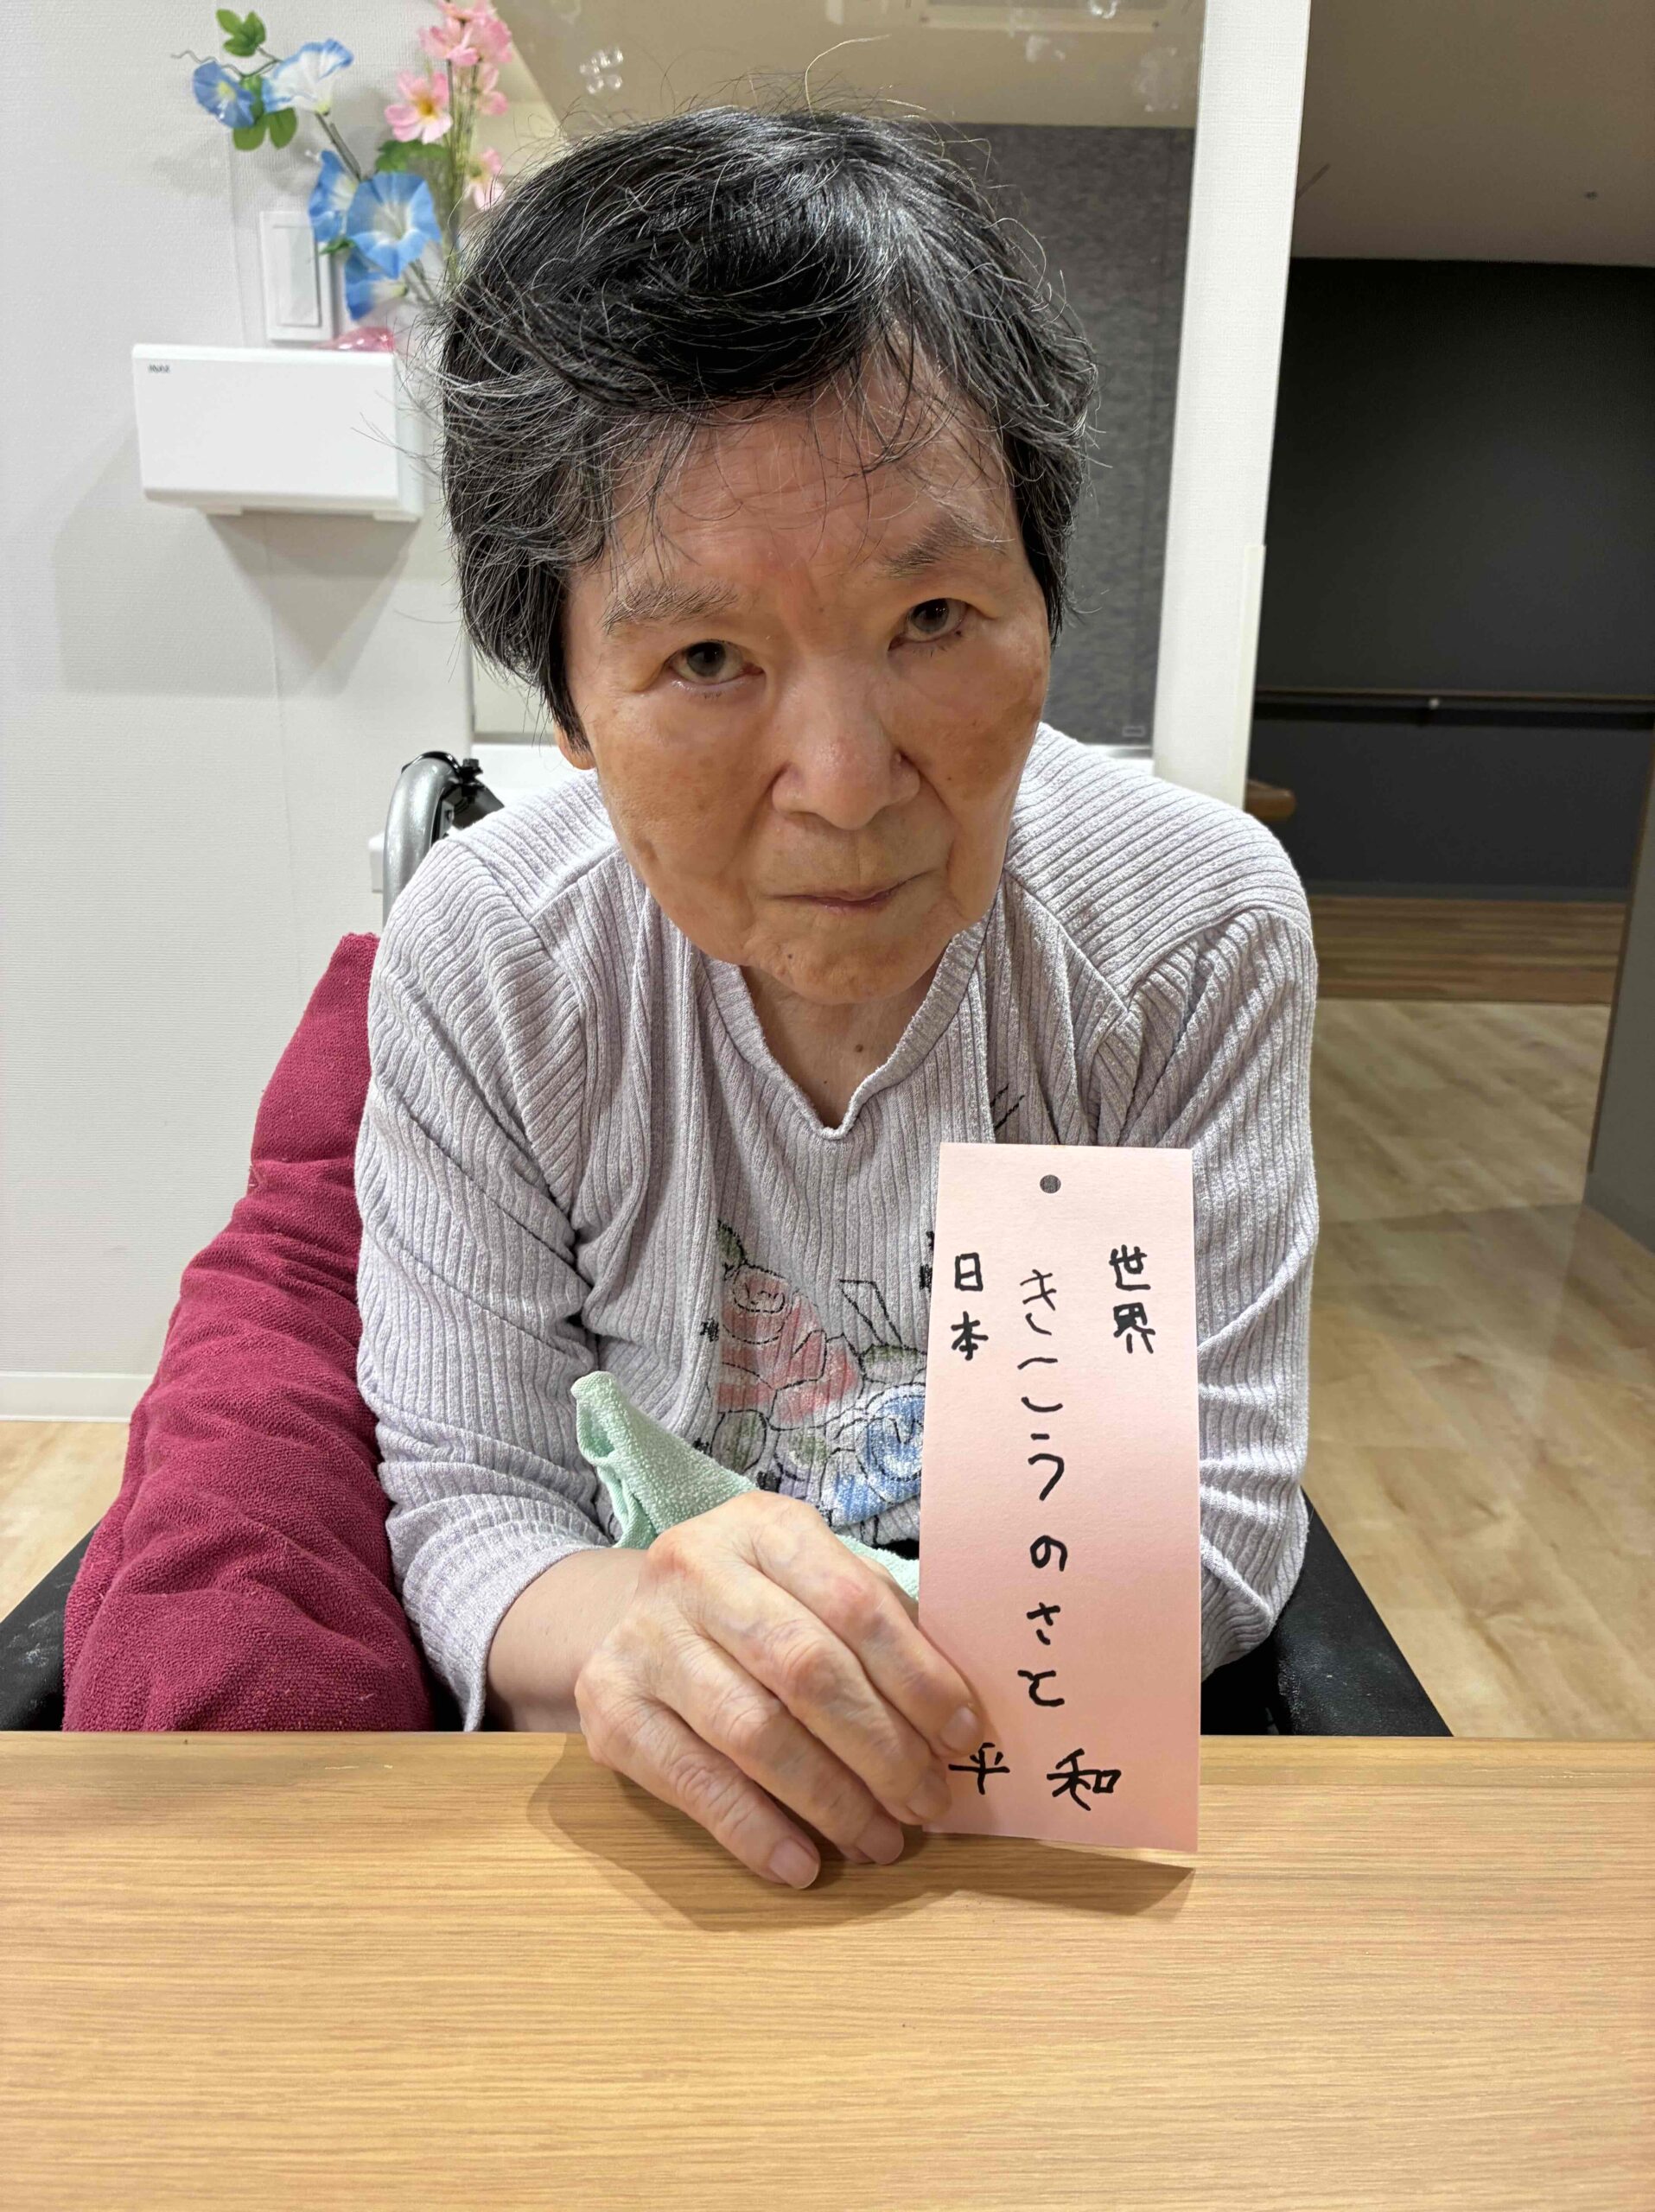 世界
きこうのさと
日本
平和